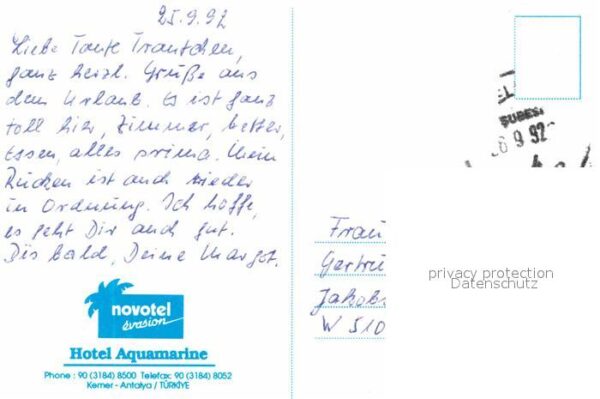 25.9.92
Liebe Tante Trautchen,
ganz herzl. Grüße aus
dem Urlaub. Es ist ganz
toll hier, Zimmer, Wetter,
Essen, alles prima. Mein
Rücken ist auch wieder
in Ordnung. Ich hoffe,
es geht Dir auch gut.
Bis bald, Deine Margot.
novotel
évasion
Hotel Aquamarine
Phone : 90 (3184) 8500 Telefax: 90 (3184) 8052
Kemer - Antalya / TÜRKİYE
EL
ŞUBESİ
6 9 92
Frau
Gertru
Jakobs
W 510
privacy protection
Datenschutz